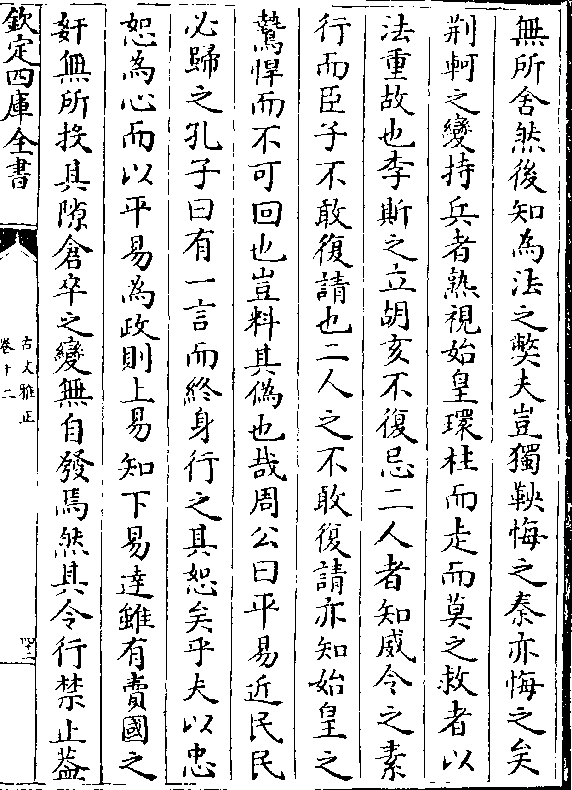 無所舍然後知為法之弊夫豈獨鞅悔之秦亦悔之矣
荆軻之變持兵者熟視始皇環柱而走而莫之救者以
法重故也李斯之立胡亥不復忌二人者知威令之素
行而臣子不敢復請也二人之不敢復請亦知始皇之
鷙悍而不可回也豈料其偽也哉周公曰平易近民民
必歸之孔子曰有一言而終身行之其恕矣乎夫以忠
恕為心而以平易為政則上易知下易達雖有賣國之
奸無所投其隙倉卒之變無自發焉然其令行禁止葢
欽定四庫全書
古文雅正
卷十二